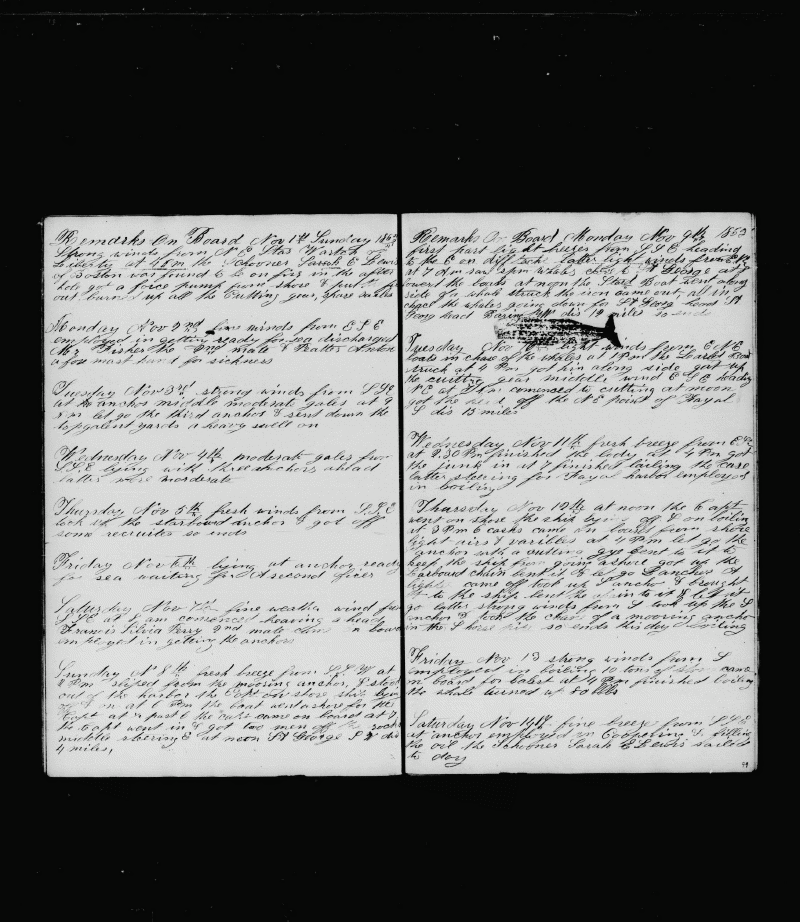 Remarks On Board Nov 1st Sunday 1863
Strong winds from N E Star Watch
Liberty at 8 Pm the Schooner Sarah E Lewis
of Boston was found to be on fire in the after
hole got a force pump from shore & put it
out burnt up all the Cutting gear, spare sailes
Monday Nov 2nd fine winds from E S E
employed in getting ready for sea discharged
Mr Fisher the 2nd mate &
a fore mast hand for sickness
Tuesday Nov 3rd strong winds from S S E
at anchor middle moderate gales at 9
Pm let go the third anchor & sent down the
topgalent yards a heavy swell on
Wednesday Nov 4th moderate gales from
S S E lying with three anchors ahead
latter more moderate
Thursday Nov 5th fresh winds from S S E
took up the starboard anchor & got off
some recruites so ends
Friday Nov 6th lying at anchor ready
for sea waiting for A second ficer
Saturday Nov 7th fine weather wind from
S S E at am comenced heaving a head
Francis Silvia Perry 2nd mate came on board
employed in getting the anchors
Sunday Nov 8th fresh breeze from S S W at
2 Pm sliped from the mooring anchor, & stood
out of the harbor the Capt on shore, ship lying
off & on at 6 Pm the boat went ashore for the
Capt at ½ past 6 the capt came on board at 7
the capt went in & got two men off the rocks
middle steering E at noon St George S W dis
4 miles,
Remarks On Board Monday Nov 9th 1863
first part light breeze from S S E heading
to the E on diff tacks latter light winds from
at 7 Am saw sperm whales close to St George at
lowert the boats at noon the Star Boat went along
side of a whale struck the iron came out, all in
chace the whales going down for St Georg sound
long head Baring dis 12 miles so ends
Tuesday Nov 10th light winds from E N E
boats in chase of the whales at 1 Pm the Larbd Boat
struck at 4 Pm got him along side got up
the cutting gear middle wind E S E heading
N E at 7 Am comenced to cutting at noon
got the head off the N E point of Fayal
S dis 15 miles
Wednesday Nov 11th fresh breeze from E
at 2.30 Pm finished the body, at 4 Pm got
the junk in at 7 finished bailing the case
latter steering for Fayal harbor employed
in boiling
Thursday Nov 12th at noon the Capt
went on shore the ship lying off & on boiling
at 3 Pm casks came on board from shore
light airs varibles at 4 Pm let go the
anchor with a cutting guy bent to it to
keep the ship from going ashore got up the
larbourd chain bent it & let go S anchor A
lighter came off took up S anchor & brought
it to the ship bent the chain to it & let it
go latter strong winds from S took up the S
anchor & took the chain of a mooring anchor
in the S hose pipe so ends this day boiling
Friday Nov 13 strong winds from S
employed in boiling 10 tons of came
on board for balest at 4 Pm finished boiling
the whale turned up 80 bbls
Saturday Nov 14th fine breeze from S S E
at anchor employed in Coopering & filling
the oil the Schooner Sarah E Lewis sailed
to day